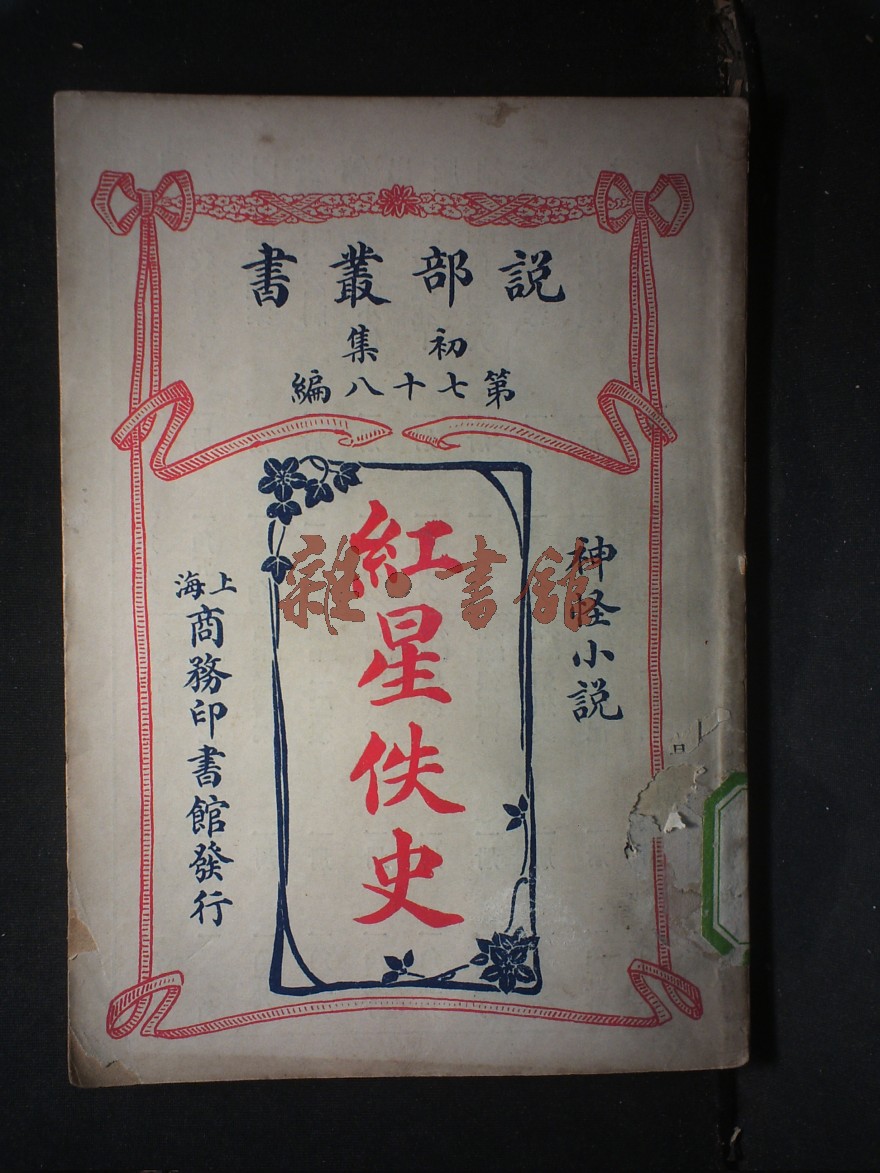 説部叢書
初集
第七十八編
神怪小説
紅星佚史
上海
商務印書館發行
雜·書館